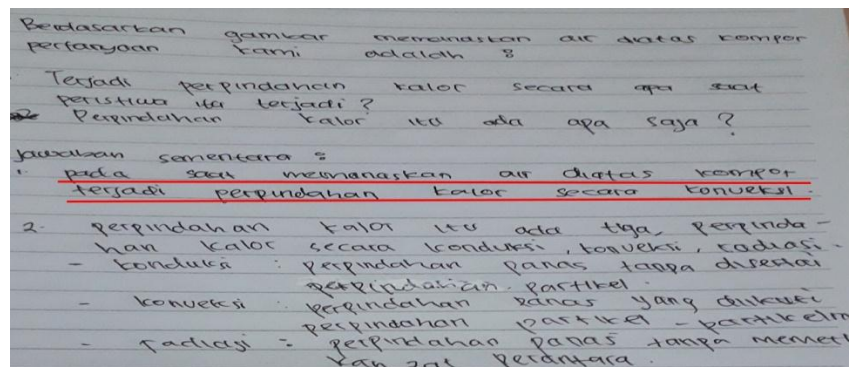 Berdasarkan gambar memanaskan air diatas kompor
pertanyaan kami adalah :
Terjadi perpindahan kalor secara apa saat
peristiwa itu terjadi?
Perpindahan kalor itu ada apa saja?
Jawaban sementara :
1. pada saat memanaskan air diatas kompor
terjadi perpindahan kalor secara konveksi.
2. perpindahan kalor itu ada tiga, perpinda-
han kalor secara konduksi, konveksi, radiasi.
- konduksi : perpindahan panas tanpa disertai
perpindahan partikel.
- konveksi : perpindahan panas yang diikuti
perpindahan partikel - partikeln
- radiasi : perpindahan panas tanpa memerl
kan zat perantara.